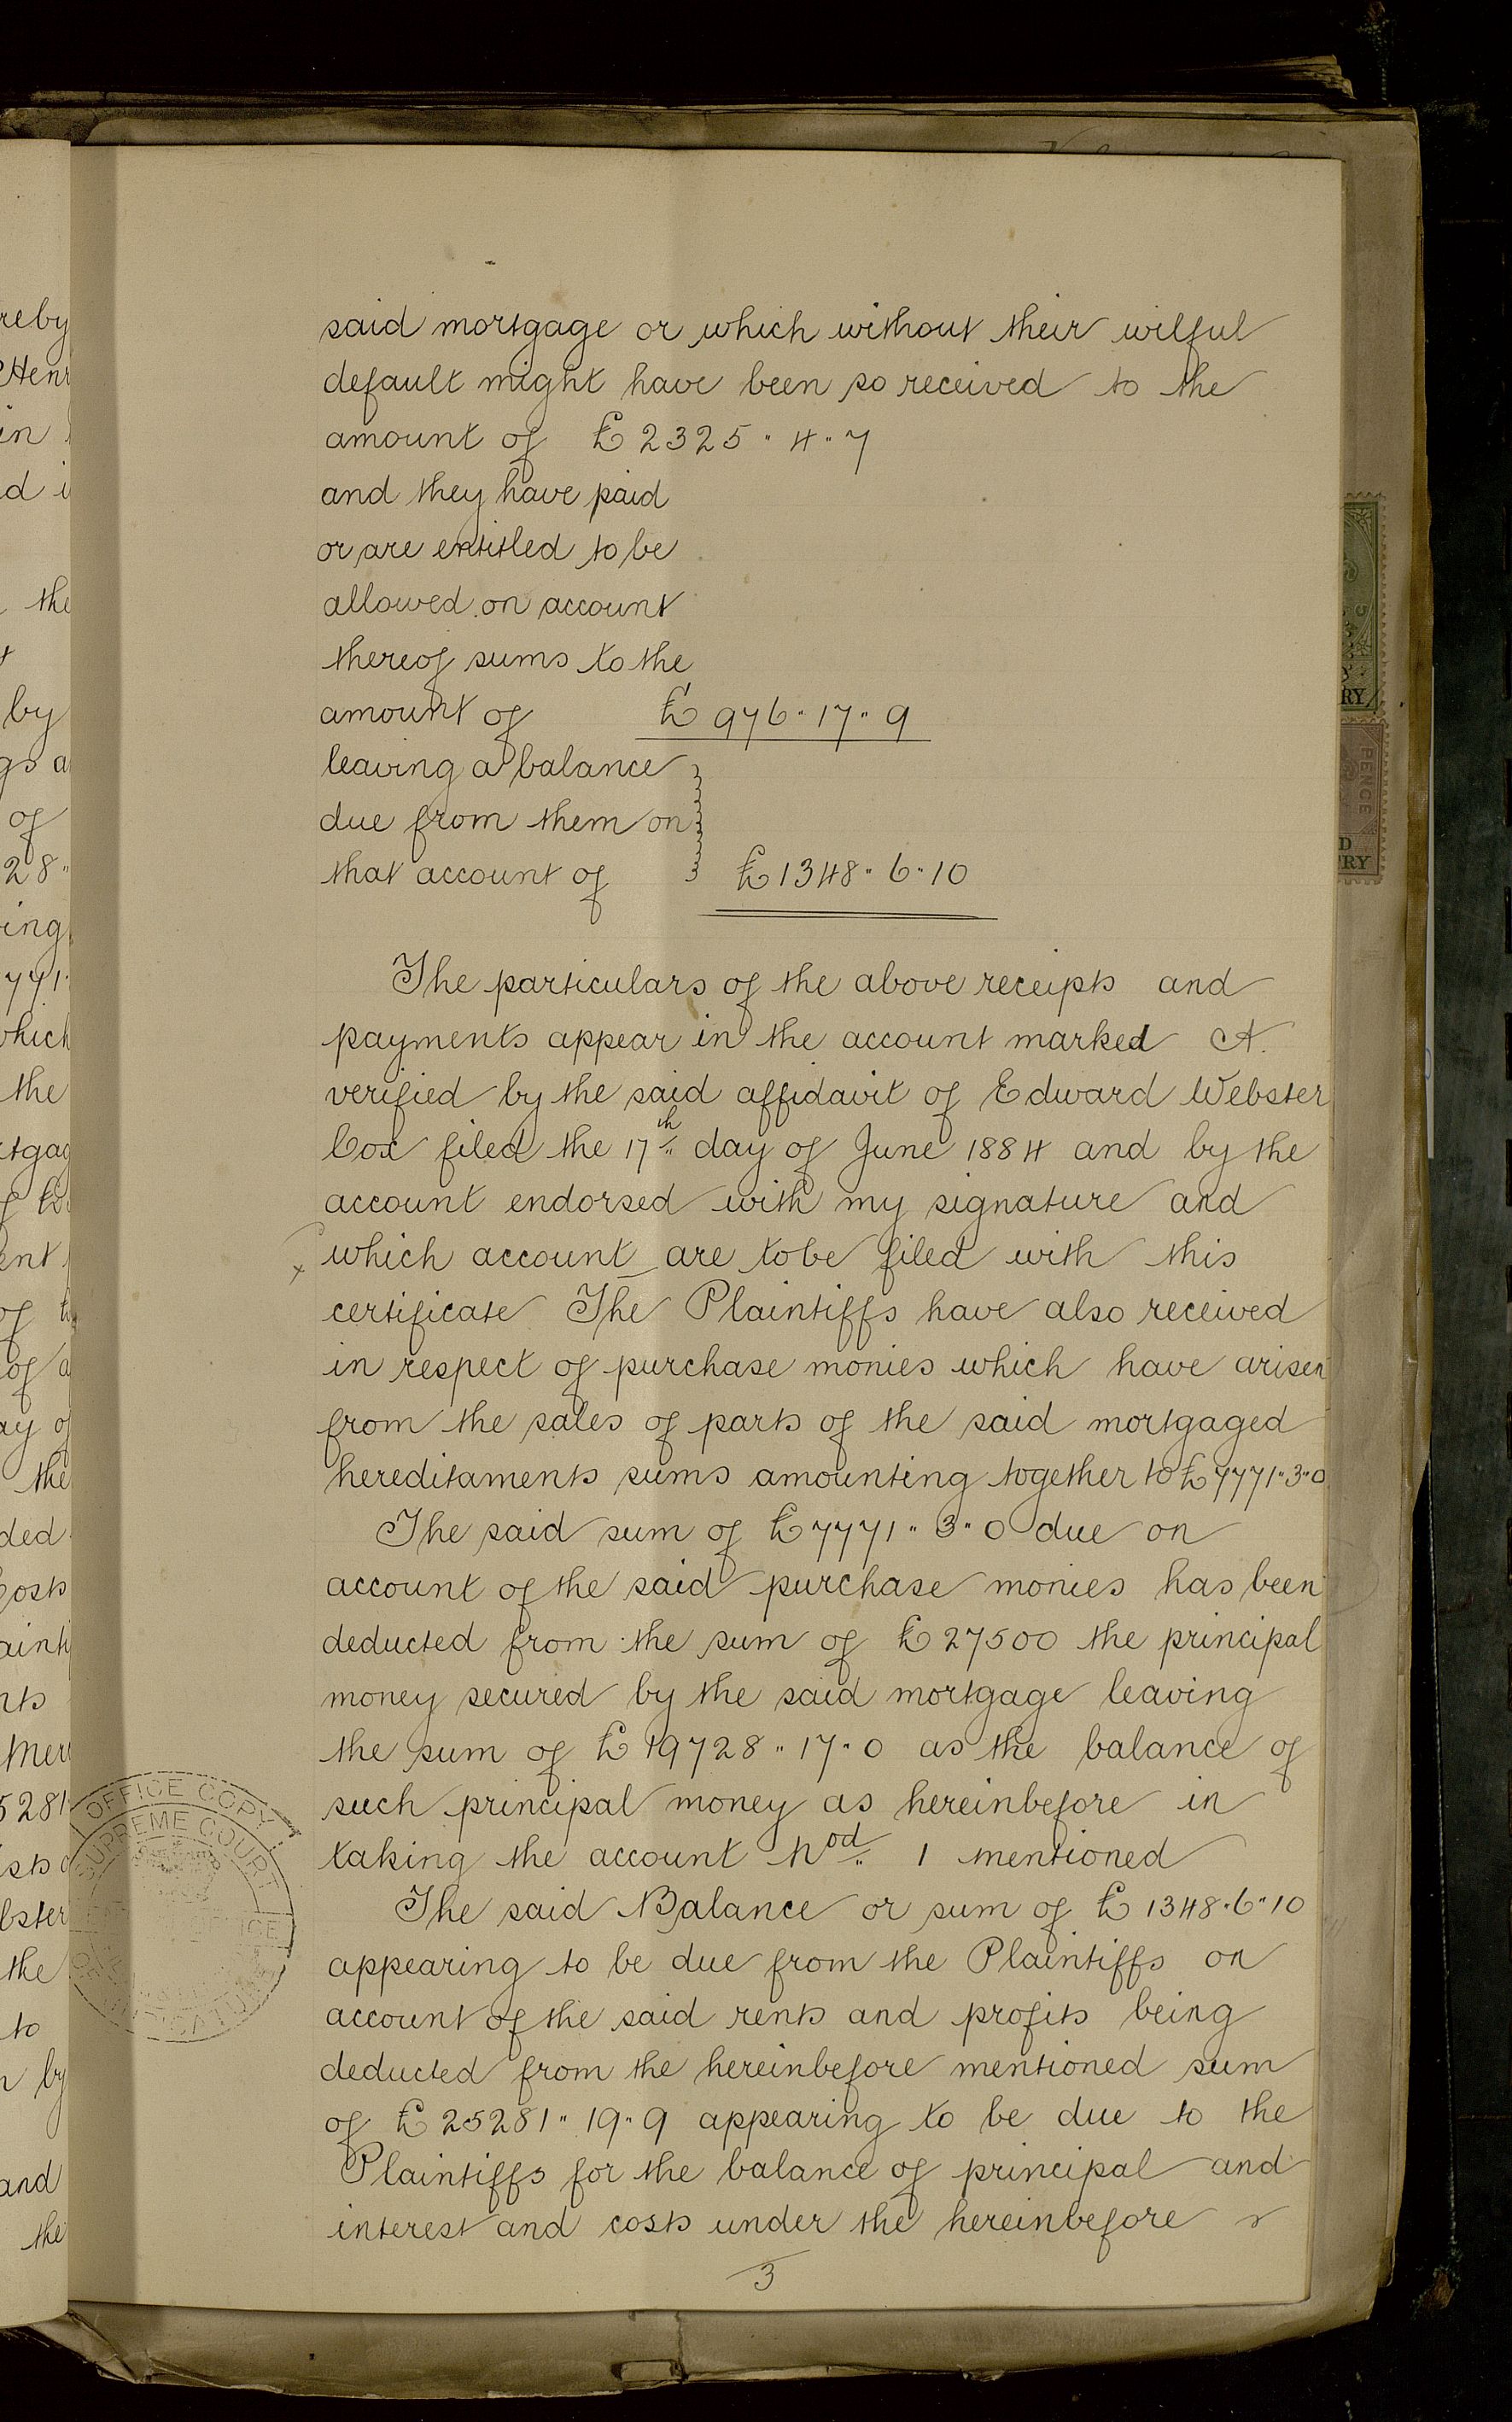 said mortgage or which without their wilful
default might have been so received to the
amount of £2325〃4〃7
and they have paid
or are entitled to be
allowed on account
thereof sums to the
amount of £976〃17〃9
leaving a balance
due from them on
that account of £1348〃6〃10
The particulars of the above receipts and
payments appear in the account marked A.
verified by the said affidavit of Edward Webster
Cox filed the 17th day of June 1884 and by the
account endorsed with my signature and
x which account are to be filed with this
certificate The Plaintiffs have also received
in respect of purchase monies which have arisen
from the sales of parts of the said mortgaged
hereditaments sums amounting together to £7771〃3〃0
The said sum of £7771〃3〃0 due on
account of the said purchase monies has been
deducted from the sum of £27500 the principal
money secured by the said mortgage leaving
the sum of £19728〃17〃0 as the balance of
such principal money as hereinbefore in
taking the account Nod 1 mentioned
The said Balance or sum of £1348〃6〃10
appearing to be due from the Plaintiffs on
account of the said rents and profits being
deducted from the hereinbefore mentioned sum
of £25281〃19〃9 appearing to be due to the
Plaintiffs for the balance of principal and
interest and costs under the hereinbefore
3
OFFICE COPY
SUPREME COURT
OF JUDICATURE
PENCE
RY
D
RY
reby
Hen
in
the
by
of
28〃
ing
771
which
the
of
of
of a
ay of
the
ded
Costs
nts
5281
bster
the
to
by
and
the